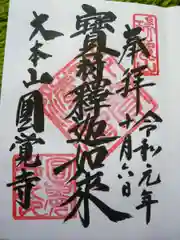 奉拝
令和元年
十月六日
寳冠釋迦如来
大本山圓覚寺